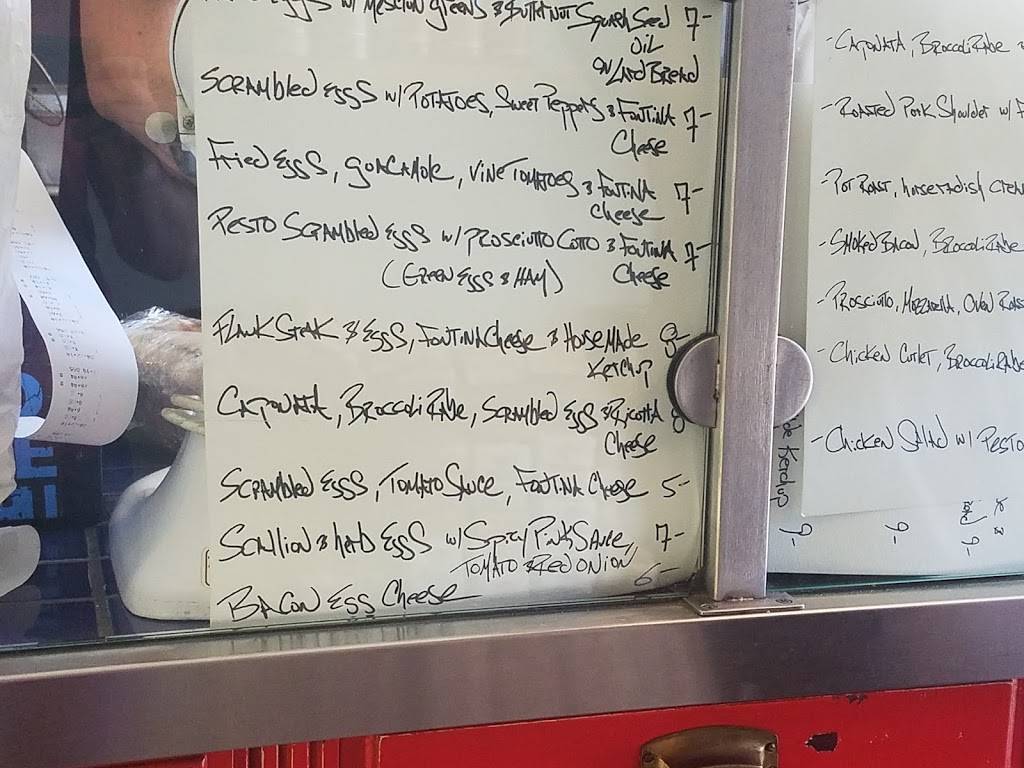 EggS w/ Mesclun greens & Butternut Squash Seed 7-
Oil
on Land Bread
Scrambled eggs w/ Potatoes, Sweet Peppers & Fontina 7-
Cheese
Fried EggS, guacamole, Vine Tomatoes & Fontina 7-
Cheese
Pesto Scrambled Eggs w/ Prosciutto Cotto & Fontina 7-
(Green Eggs & Ham) Cheese
Flank Steak & Eggs, Fontina Cheese & House Made 8-
Ketchup
Caponata, Broccoli Rabe, Scrambled Eggs & Ricotta 8
Cheese
Scrambled EggS, Tomato Sauce, Fontina Cheese 5-
Scallion & herb EggS w/ Spicy Pink Sauce, 7-
Tomato & Red Onion
Bacon Egg Cheese 6-
- Caponata, Broccoli Rabe
- Roasted Pork Shoulder w/
- Pot Roast, horseradish
- Smoked Bacon, Broccoli Rabe
- Prosciutto, Mozzarella, Oven
- Chicken Cutlet, Broccoli Rabe
- Chicken Salad w/ Pesto
Ketchup